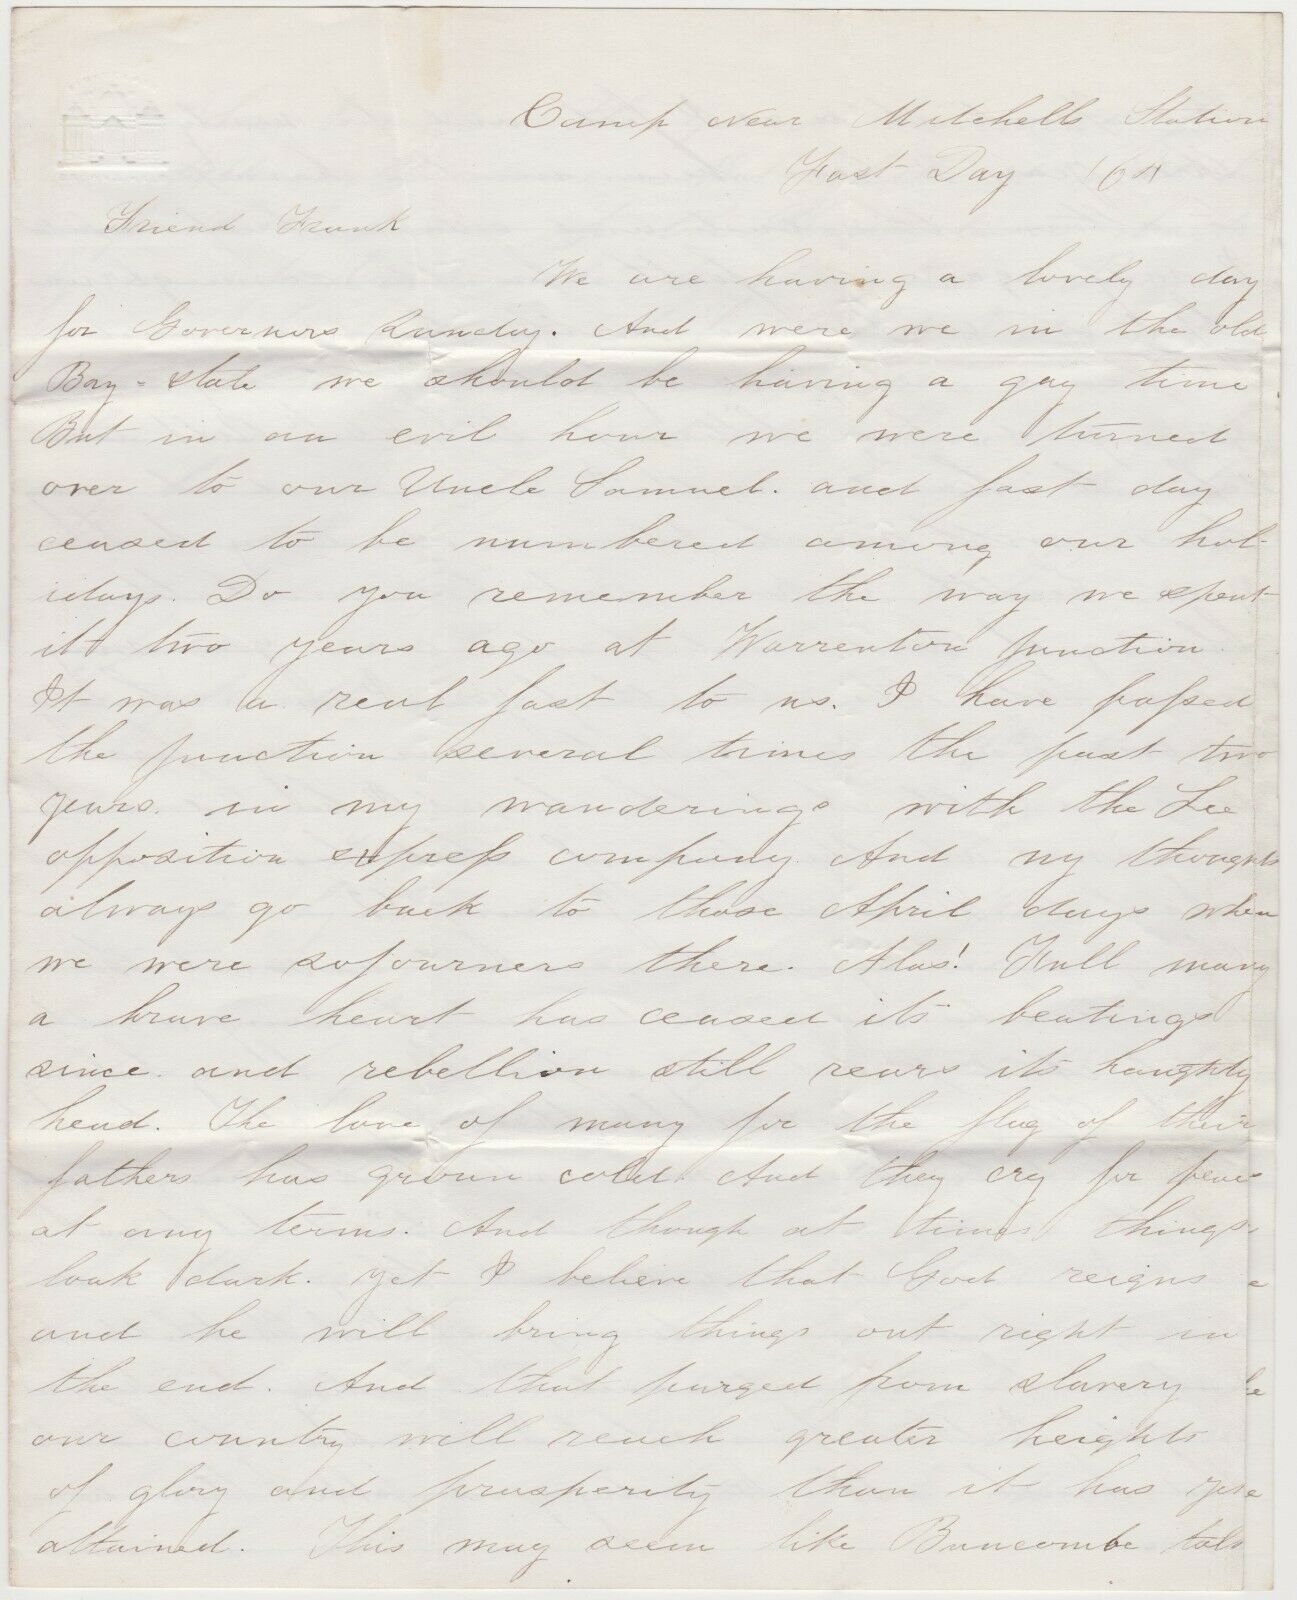 Camp Near Mitchells Station
Fast Day '64
Friend Frank
We are having a lovely day
for Governors Sunday. And were we in the old
Bay-state we should be having a gay time
But in an evil hour we were turned
over to our Uncle Samuel. and fast day
ceased to be numbered among our hol-
idays. Do you remember the way we spent
it two years ago at Warrenton Junction.
It was a real fast to us. I have passed
the junction several times the past two
years. in my wanderings with the Lee
opposition express company And my thoughts
always go back to those April days when
we were sojourners there. Alas! Full many
a brave heart has ceased its beatings
since. and rebellion still rears its haughty
head. The love of many for the flag of their
fathers has grown cold. And they cry for peace
at any terms. And though at times things
look dark. yet I believe that God reigns
and he will bring things out right in
the end. And that purged from slavery
our country will reach greater heights
of glory and prosperity than it has yet
attained. This may seem like Buncombe talk